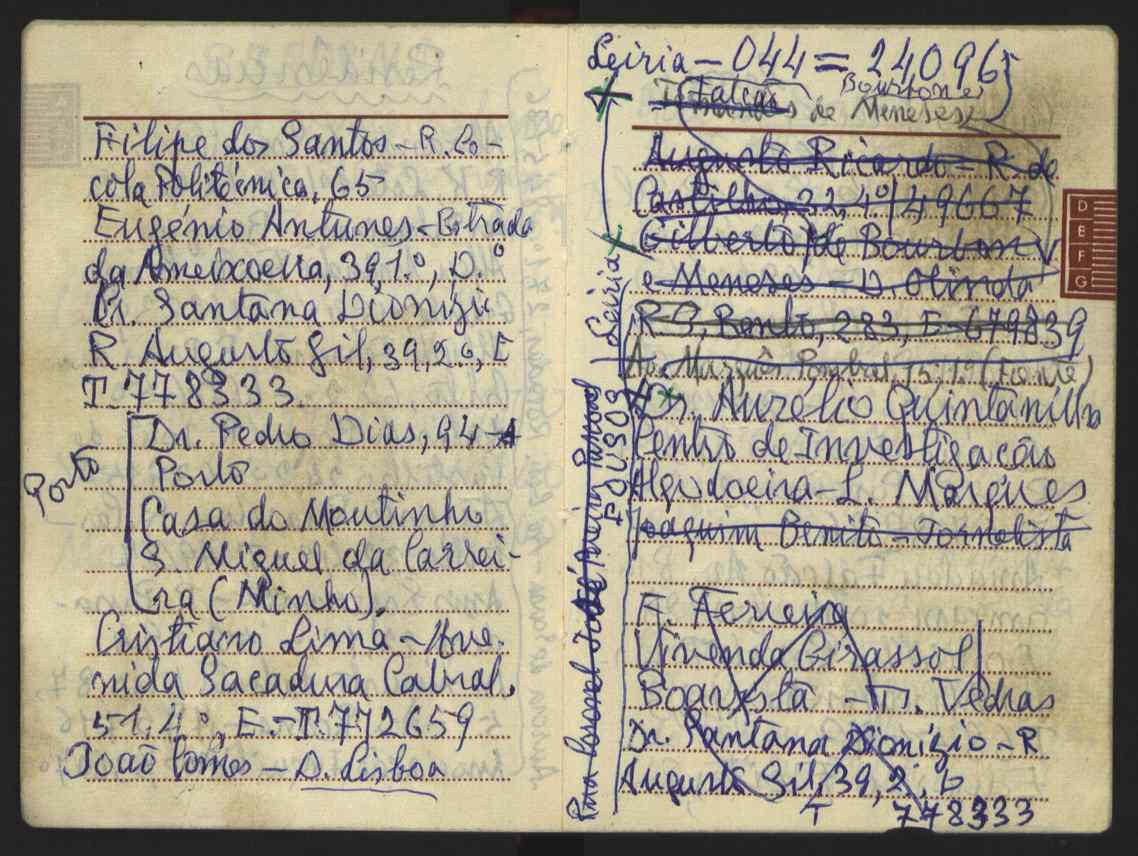 Filipe dos Santos - R. Es-
cola Politécnica, 65
Eugénio Antunes - Estrada
da Ameixoeira, 39, 1.º, D.º
Dr. Santana Dionízio
R. Augusto Gil, 39, 2.º, E
T. 778333.
Porto
Dr. Pedro Dias, 94-A
Porto
Casa do Moutinho
S. Miguel da Carrei-
ra (Minho).
Cristiano Lima - Ave-
nida Sacadura Cabral,
51, 4.º, E. - T. 772659
João Gomes - D. Lisboa
Leiria - 044 = 24096
Falcão Bourbon e
de Meneses
Augusto Ricardo - R. de
Castilho, 32, 4.º / 49667
Gilberto de Bourbon
e Meneses - D. Olinda
R. B, 283, E - 679839
Av. Marquês Pombal, 15, 1.º (Fonte)
Leiria
POUSOS
Rua Coronel
Dr. Aurélio Quintanilha
Centro de Investigação
Algodoeira - L. Marques
Joaquim Benito - Jornalista
F. Ferreira
Vivenda Girassol
Boavista - T. Vedras
Dr. Santana Dionízio - R.
Augusto Gil, 39, 2.º,
T 778333
D
E
F
G